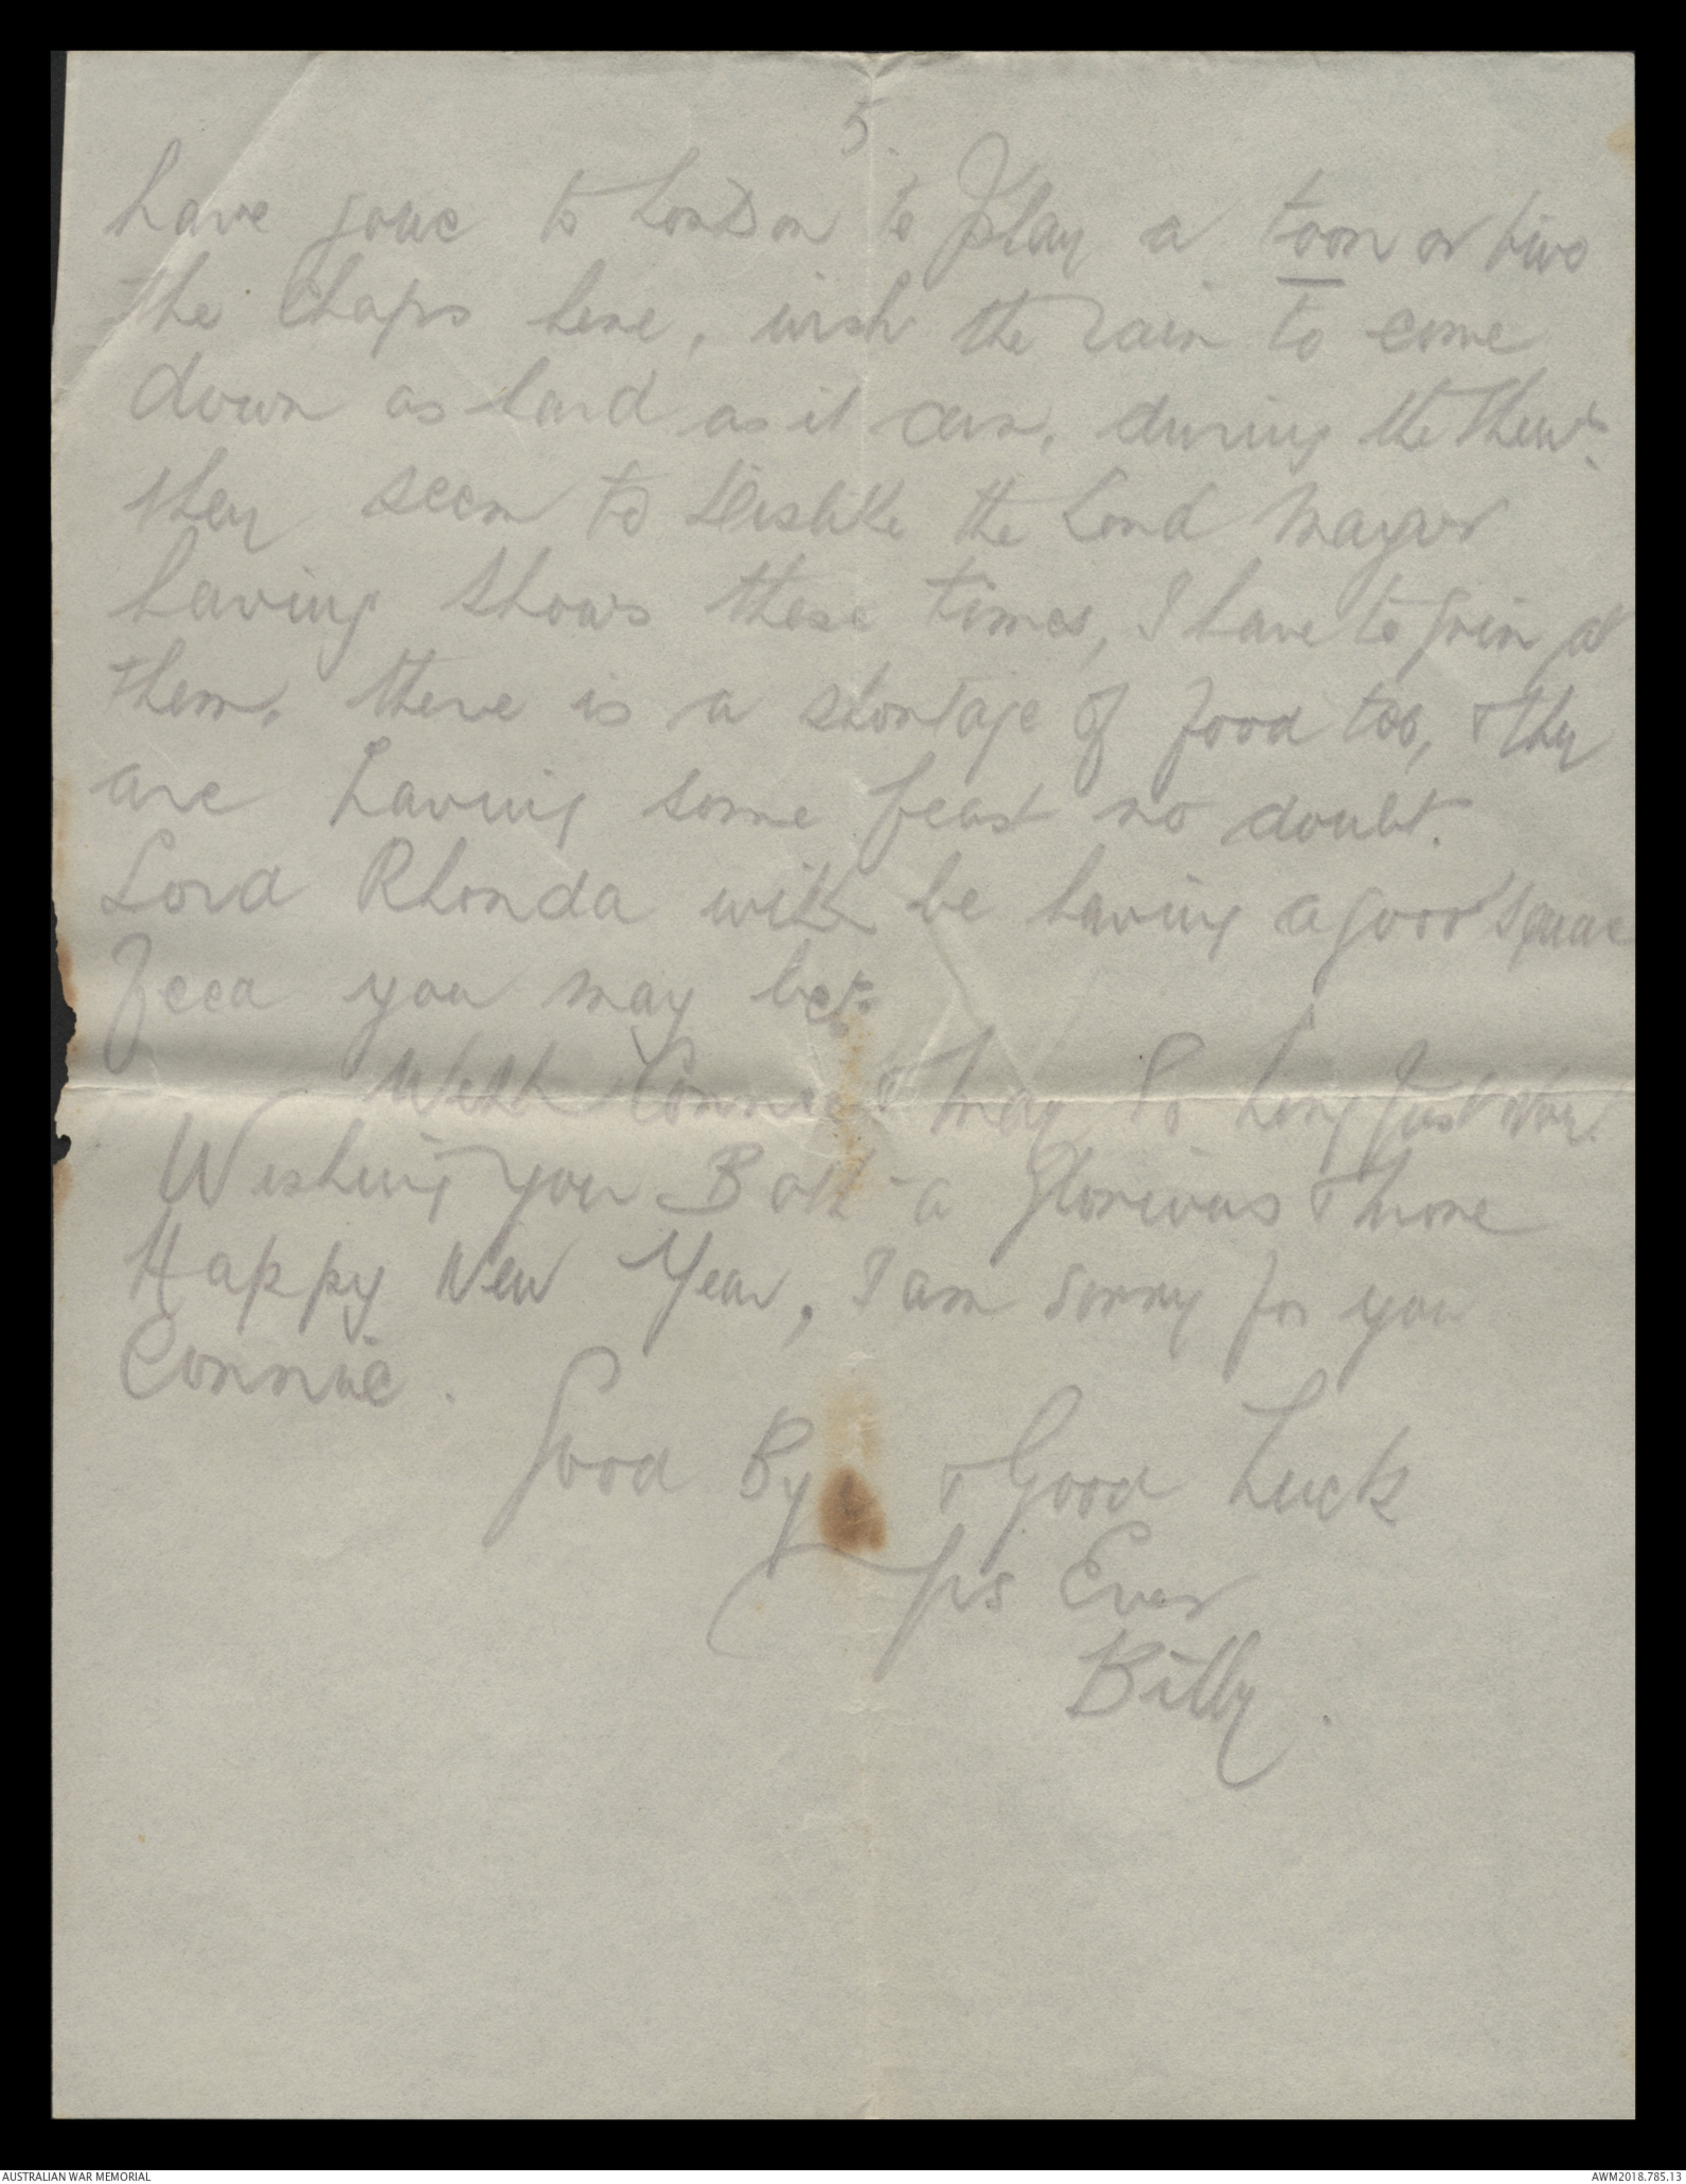 5.
have gone to London to Play a toon or two
the Chaps here, wish the rain to come
down as hard as it can, during the
they seem to Dislike the Lord Mayor
having Shows these times, I have to grin at
them. there is a shortage of food too, & they
are having some feast no doubt.
Lord Rhonda will be having a good square
feed you may bet.
Well Connie & May So Long Just Now.
Wishing you Both a Glorious & more
Happy New Year, I am sorry for you
Connie.
Good By & Good Luck
Yrs Ever
Billy.
AUSTRALIAN WAR MEMORIAL
AWM2018.785.13